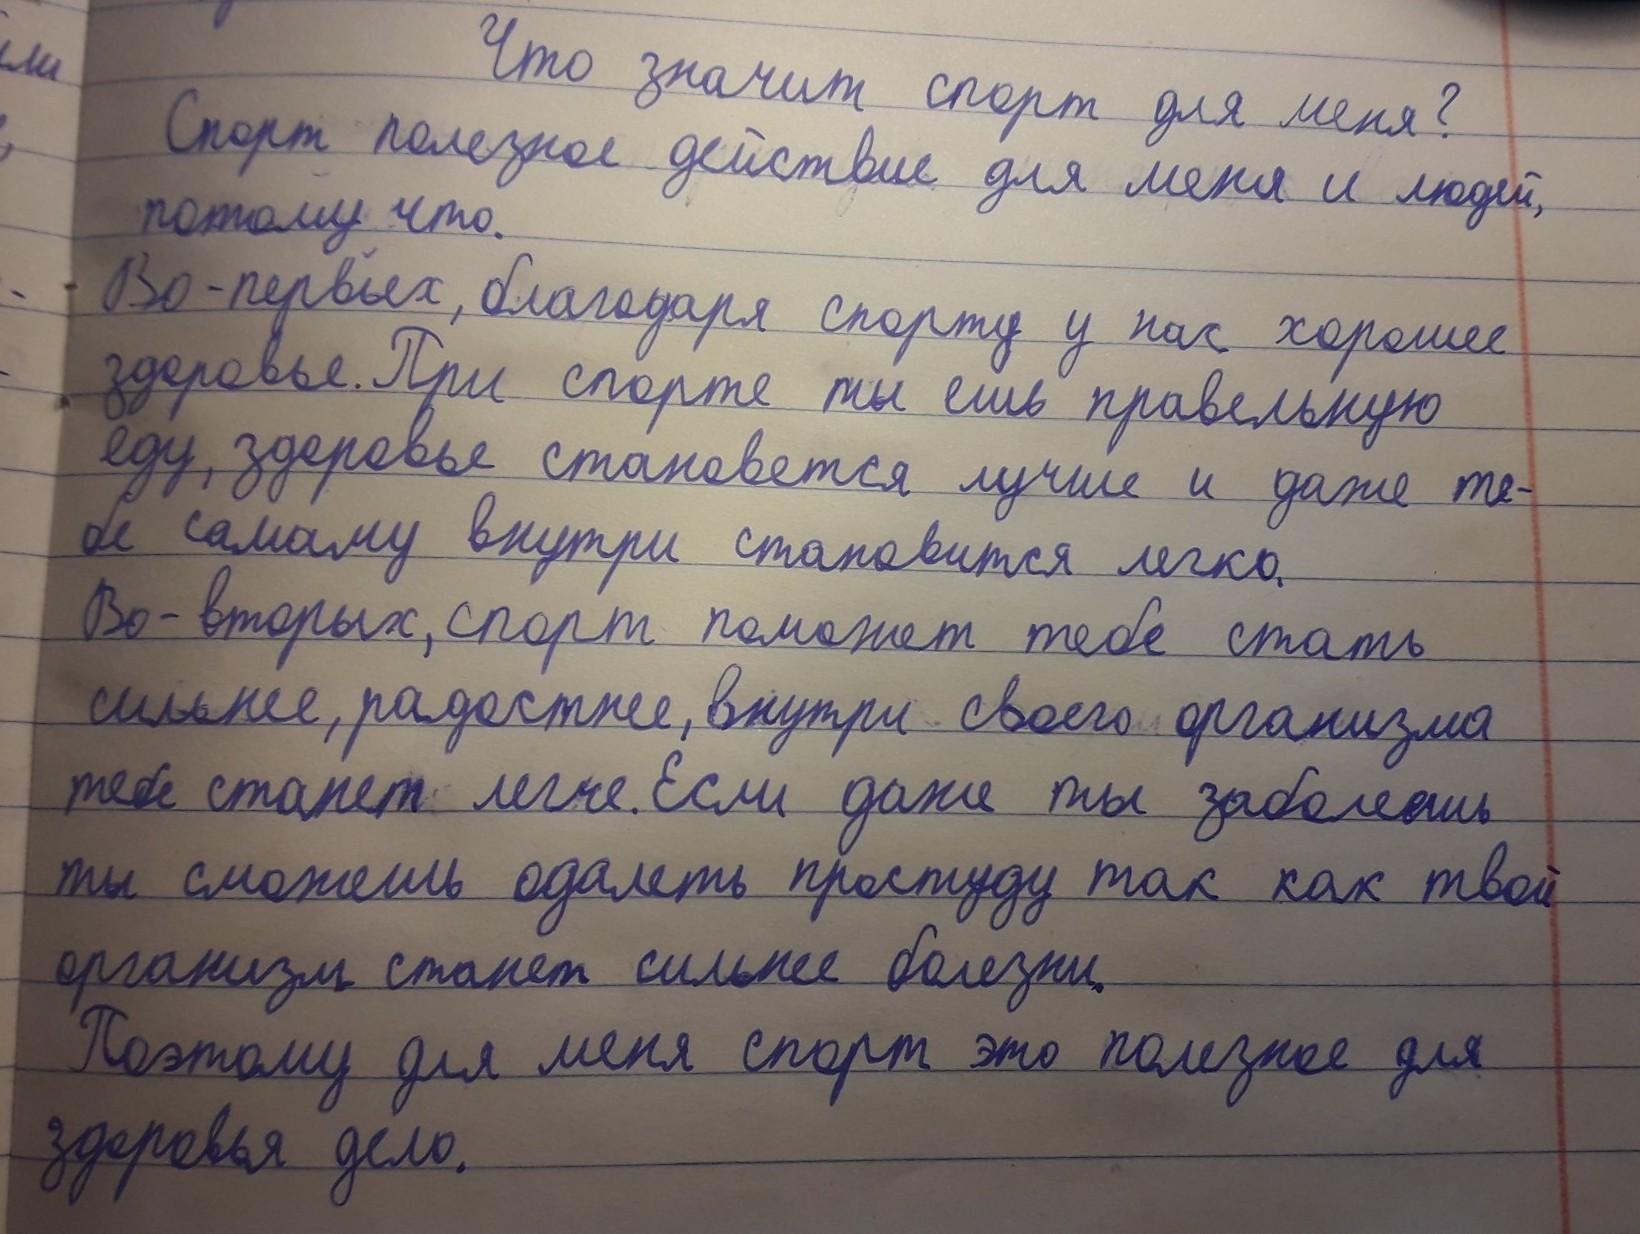 Что значит спорт для меня?
Спорт полезное действие для меня и людей,
потому что.
Во-первых, благодаря спорту у нас хорошее
здоровье. При спорте ты ешь правельную
еду, здоровье становется лучше и даже те-
бе самаму внутри становится легко.
Во-вторых, спорт поможет тебе стать
сильнее, радостнее, внутри своего организма
тебе станет легче. Если даже ты заболеешь
ты сможешь одалеть простуду так как твой
организм станет сильнее болезни.
Поэтому для меня спорт это полезное для
здоровья дело.